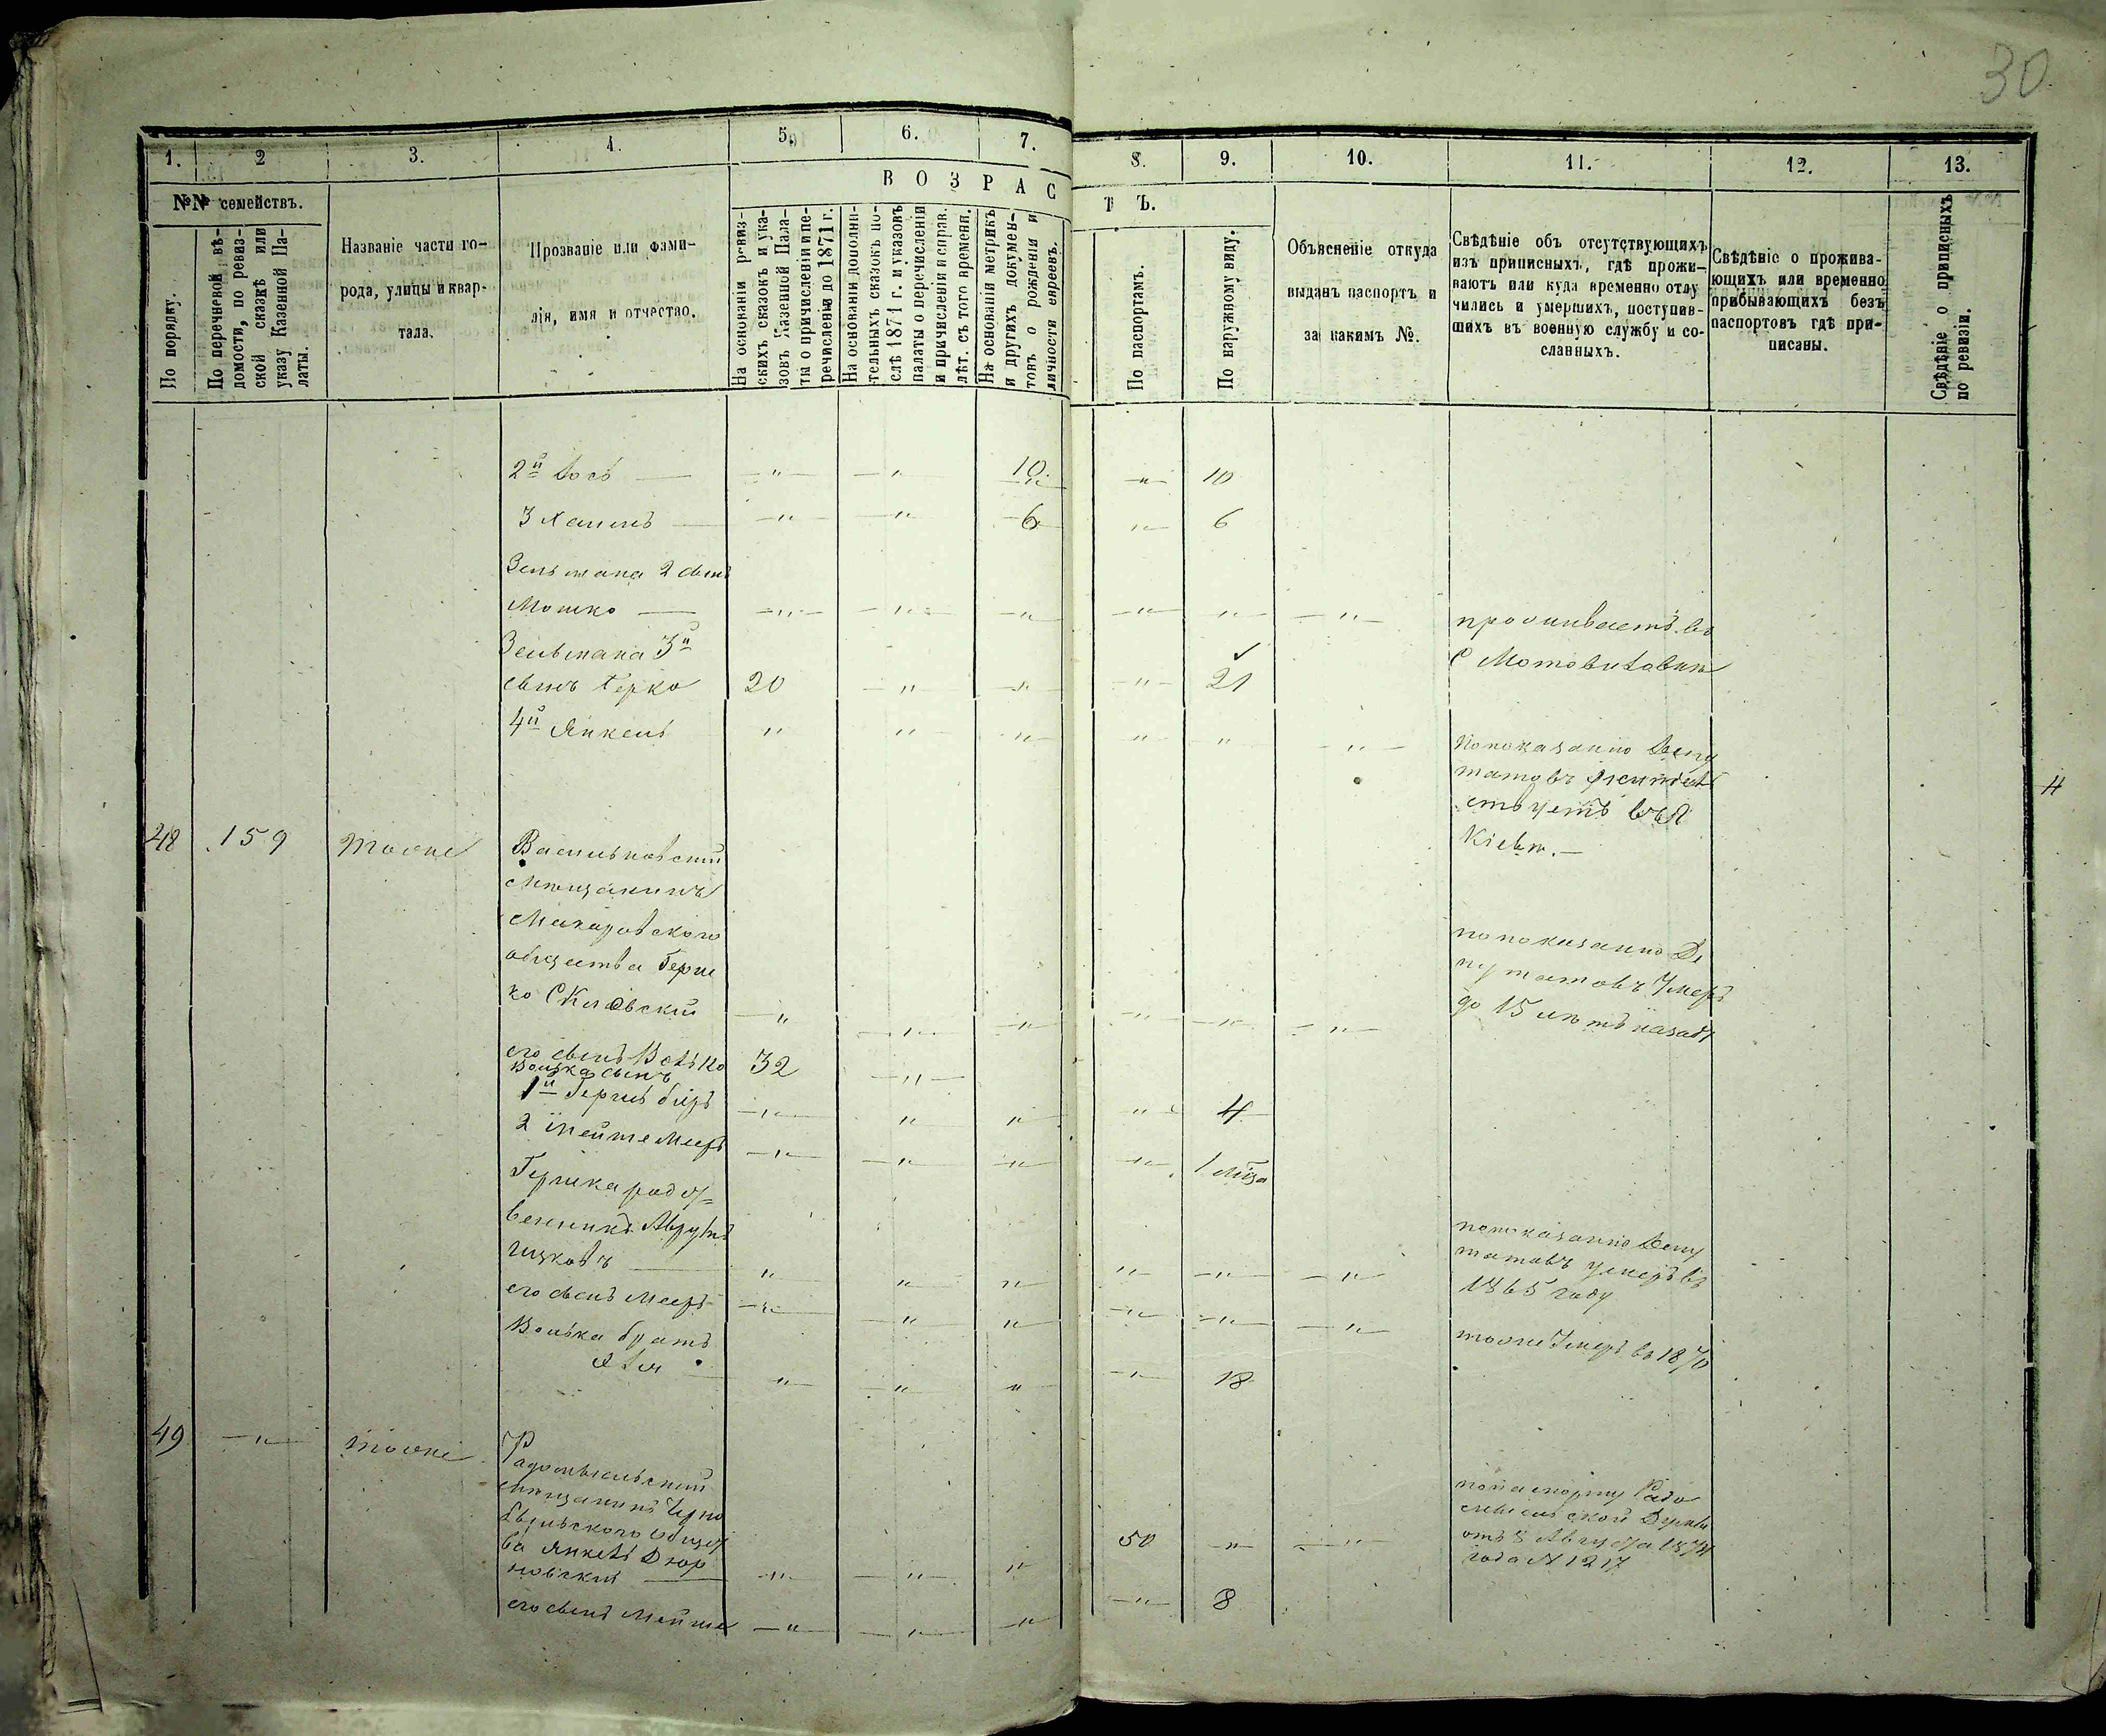 30
1. 2 3. 4. 5. 6. 7. 8. 9. 10. 11. 12. 13.
В О З Р А С Т Ъ.
№№ семействъ.
По порядку.
По перечневой вѣ-
домости, по ревиз-
ской сказкѣ или
указу Казенной Па-
латы.
Названіе части го-
рода, улицы и квар-
тала.
Прозваніе или фами-
лія, имя и отчество.
На основаніи ревиз-
скихъ сказокъ и ука-
зовъ Казенной Пала-
ты о причисленіи и пе-
речисленіи до 1871 г.
На основаніи дополни-
тельныхъ сказокъ по-
слѣ 1871 г. и указовъ
палаты о перечисленіи
и причисленіи и справ.
лѣт. съ того времени.
На основаніи метрикъ
и другихъ докумен-
товъ о рожденіи и
личности евреевъ.
По паспортамъ.
По наружному виду.
Объясненіе откуда
выданъ паспортъ и
за какимъ №.
Свѣдѣніе объ отсутствующихъ
изъ приписныхъ, гдѣ прожи-
ваютъ или куда временно отлу
чились и умершихъ, поступив-
шихъ въ военную службу и со-
сланныхъ.
Свѣдѣніе о прожива-
ющихъ или временно
прибывающихъ безъ
паспортовъ гдѣ при-
писаны.
Свѣдѣніе о приписныхъ
по ревизіи.
2й Іосъ — " " 10 " 10
3 Хаимъ — " " 6 " 6
Зельмана 2 сынъ
Мошко — " " " " " "
проживаетъ въ
с Мотовиловкѣ
Зельмана 3й
сынъ Герко 20 " " " 21
4й Янкель " " " " " "
По показанію Депу
татовъ
ствуетъ въ
Кіевѣ. —
4
48 159 тоже Васильковскій
мѣщанинъ
Макаровского
общества Герш
ко " " " " " "
по показанію Де
путатовъ Умеръ
до 15 лѣтъ назадъ
его сынъ Волько 32 "
Волька сынъ
1й Гершъ " " " " 4
2 Мейше Мееръ " " " " 1 мѣса
Гершка родст=
венникъ Аврумъ
" " " " " "
по показанію Депу
татовъ умеръ въ
1865 году
его сынъ Мееръ " " " " " "
тоже Умеръ въ 1870
Волька братъ
" " " " 18
49 " тоже Радомысльскій
мѣщанинъ Черно
быльского общест
ва Янкель Дюр
новскій — " " " 50 " "
по паспорту Радо
мысльской Думы
отъ 8 Августа 1874
года № 1217
его сынъ Мейше " " " " 8